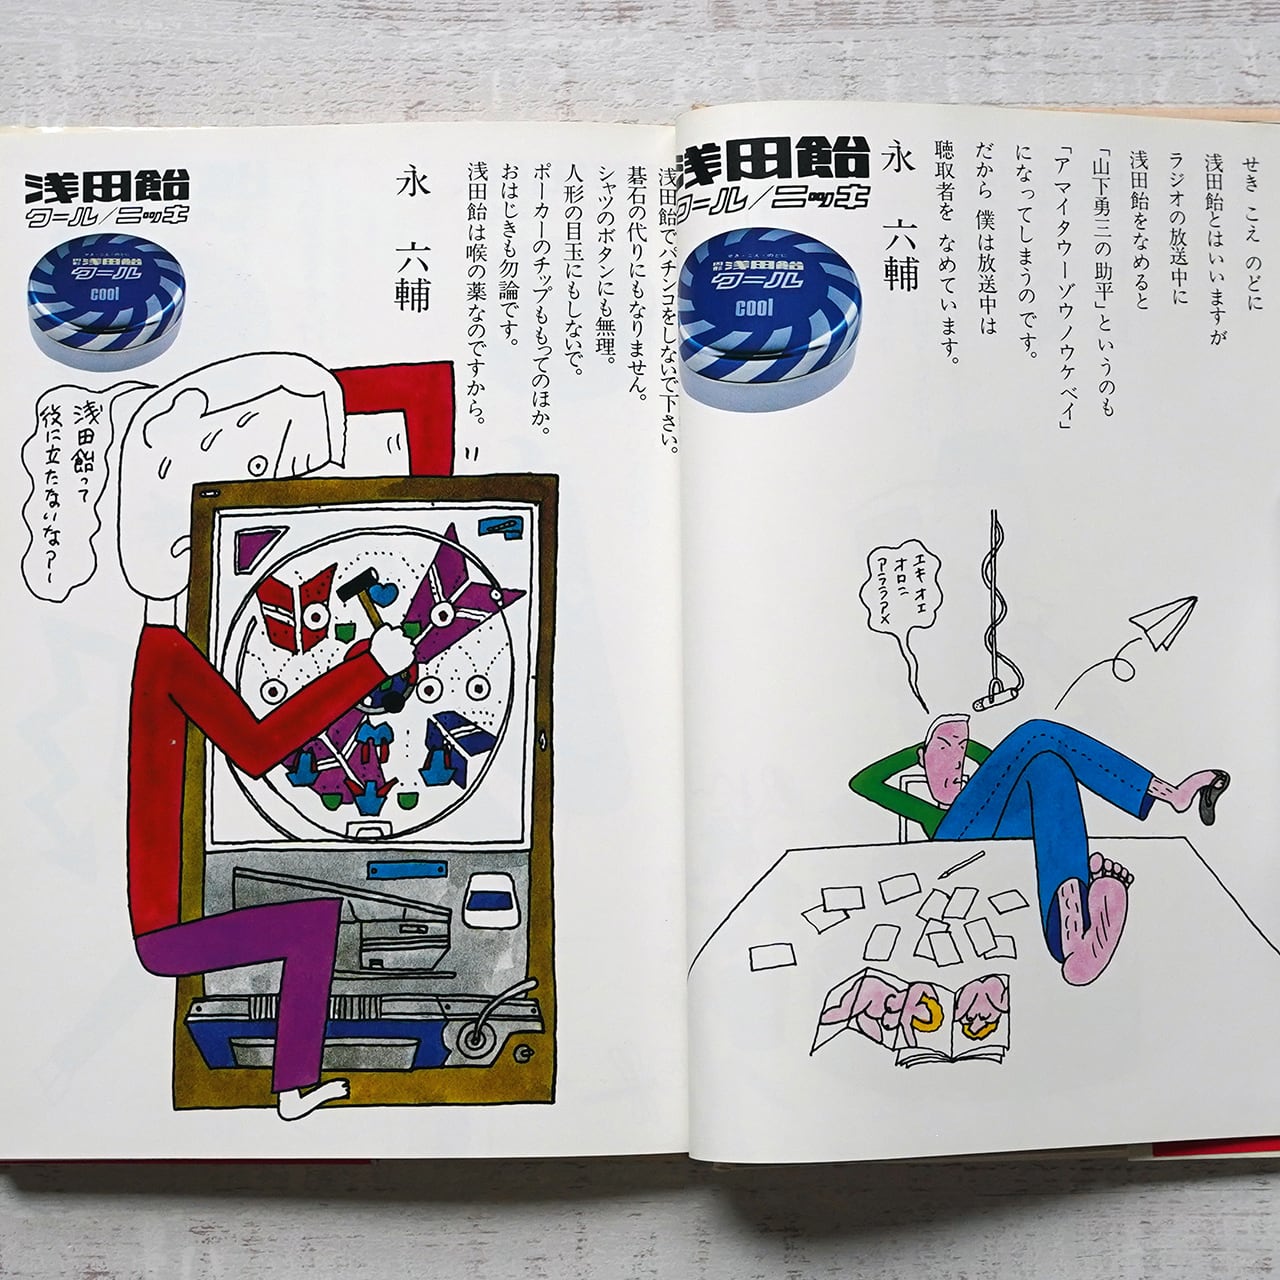 せき こえ のどに
浅田飴とはいいますが
ラジオの放送中に
浅田飴をなめると
「山下勇三の助平」というのも
「ア マイタウーゾウ ノウケベイ」
になってしまうのです。
だから 僕は放送中は
聴取者を なめています。
永 六輔
浅田飴
クール/ニッキ
せき・こえ・のどに
固形 浅田飴
クール
cool
エキ オエ
オロニ
アララアメ
浅田飴でパチンコをしないで下さい。
碁石の代りにもなりません。
シャツのボタンにも無理。
人形の目玉にもしないで。
ポーカーのチップももってのほか。
おはじきも勿論です。
浅田飴は喉の薬なのですから。
永 六輔
浅田飴
クール/ニッキ
せき・こえ・のどに
固形 浅田飴
クール
cool
浅田飴って
役に立たないなア〜